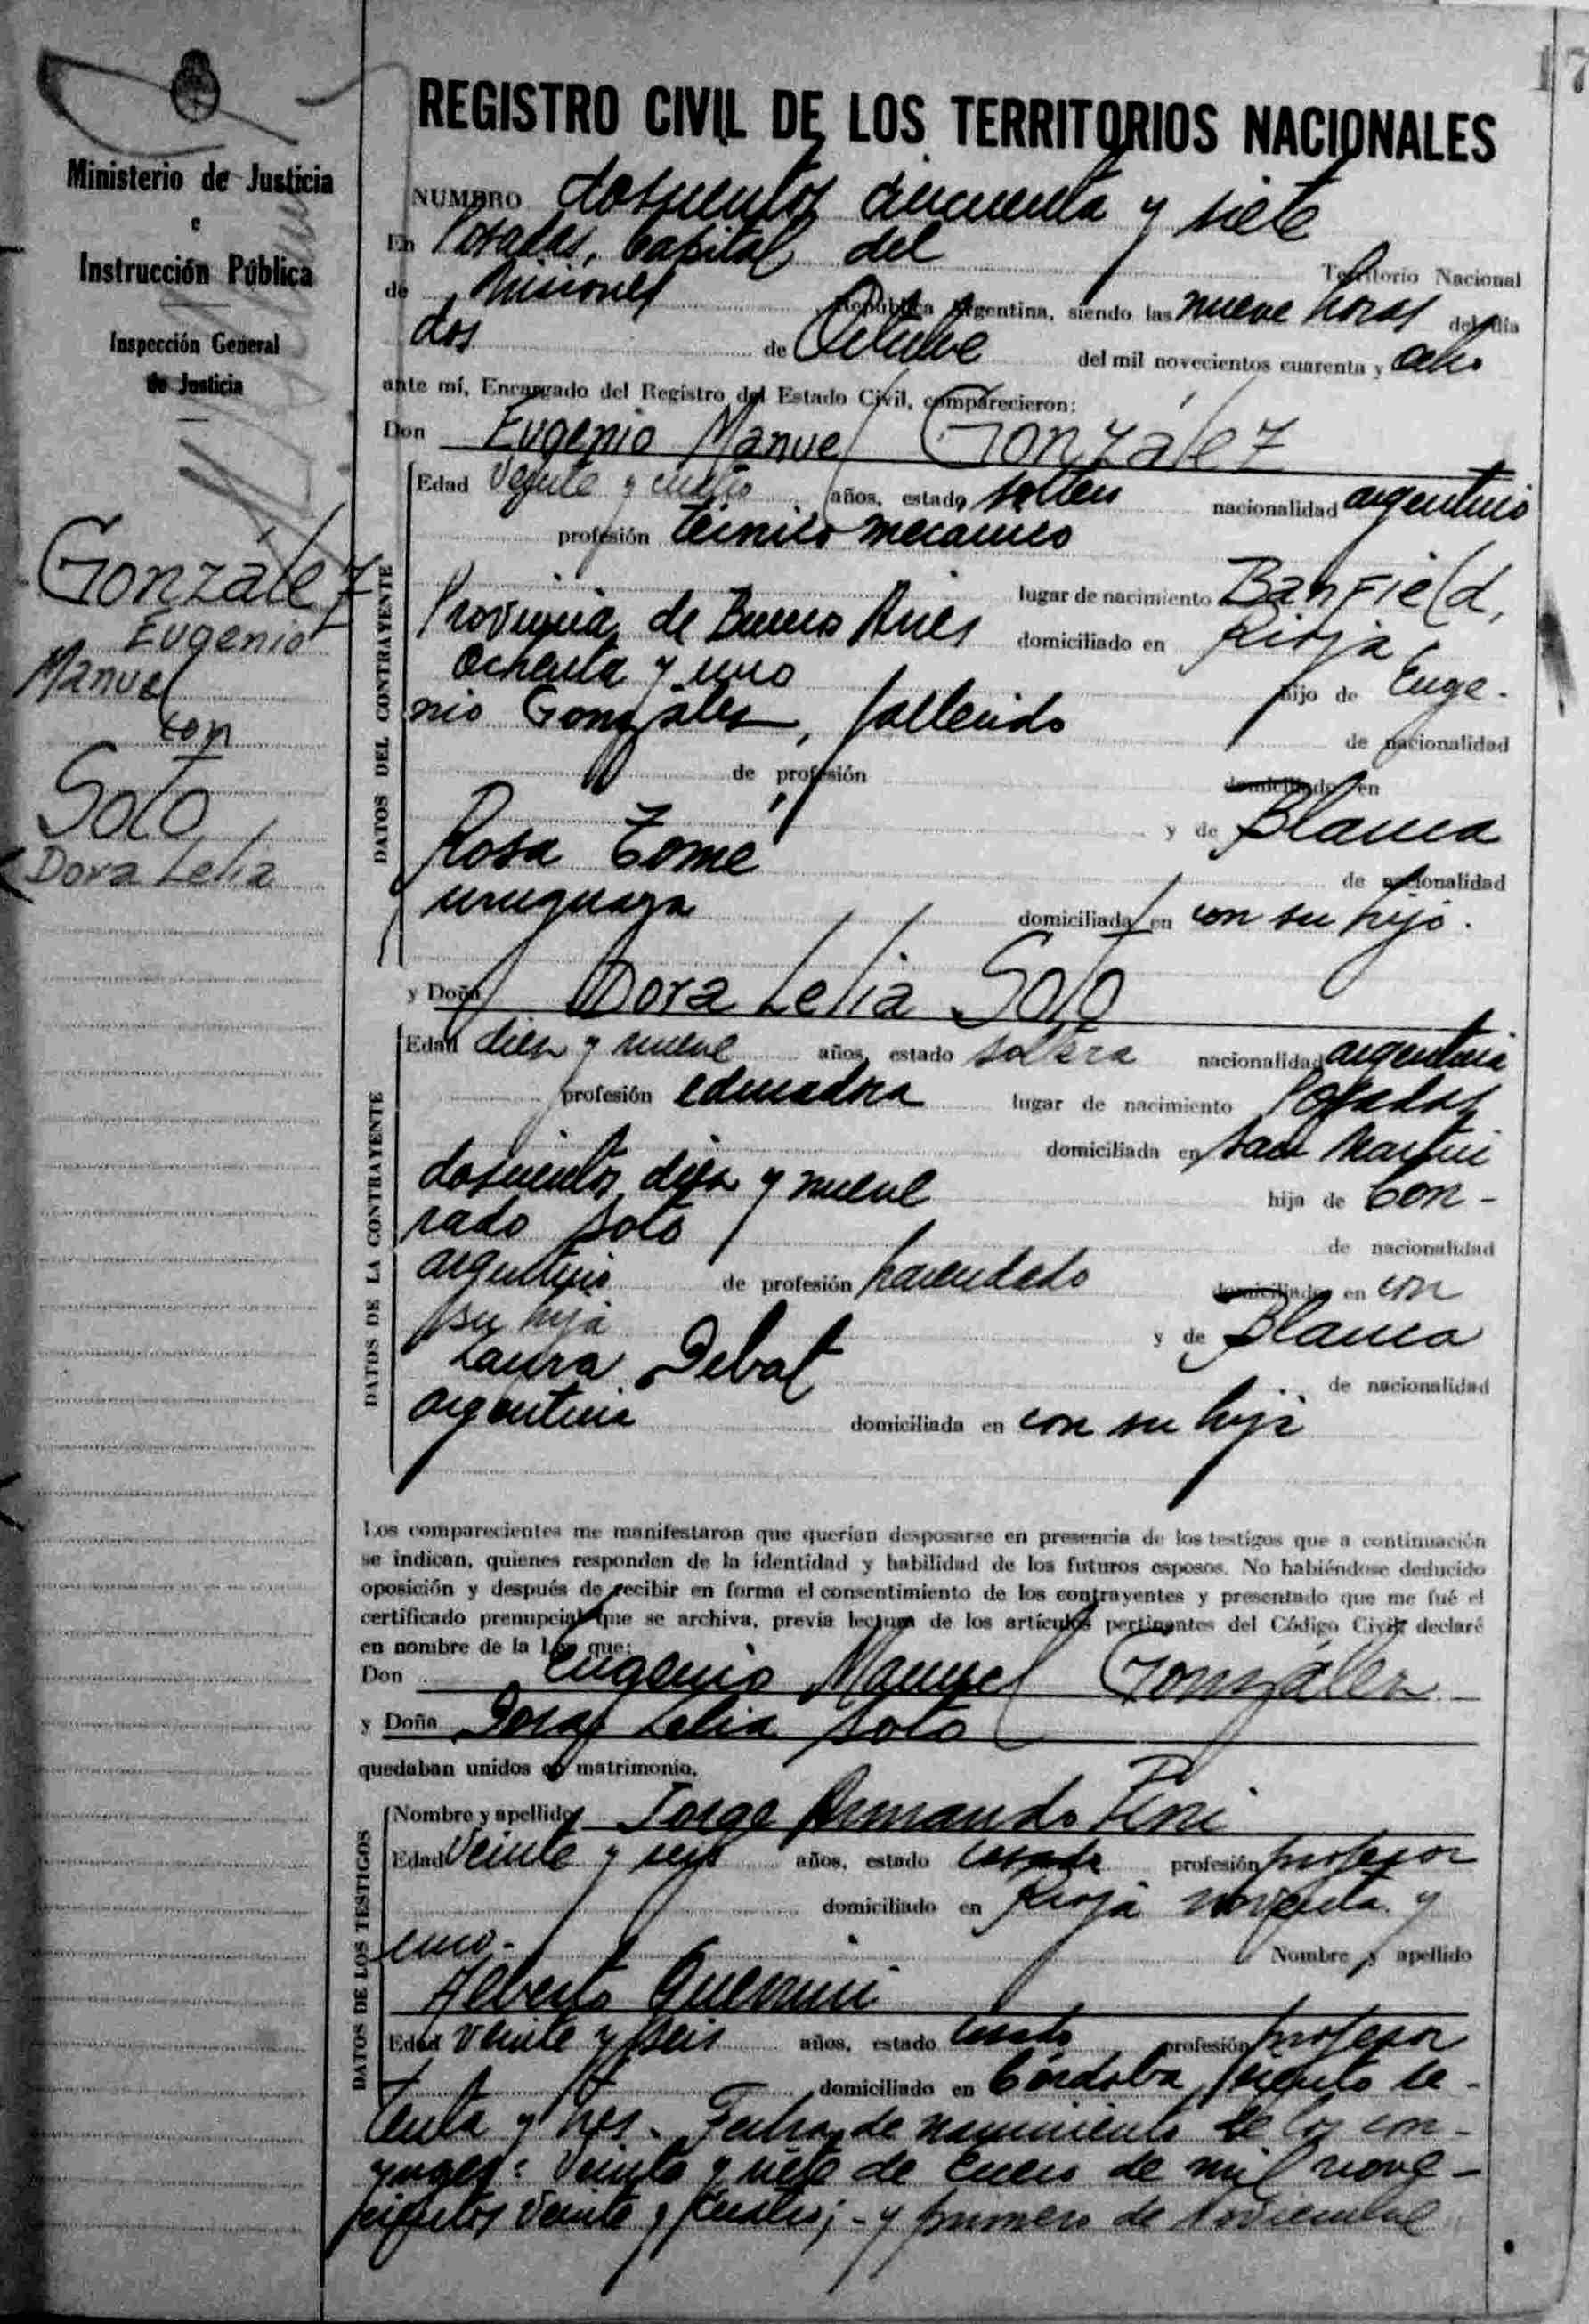 17
Ministerio de Justicia
e
Instrucción Pública
Inspección General
de Justicia
González
Eugenio
Manuel
con
Soto
Dora Lelia
REGISTRO CIVIL DE LOS TERRITORIOS NACIONALES
NUMERO doscientos cincuenta y siete
En Posadas, Capital del Territorio Nacional
de Misiones República Argentina, siendo las nueve horas del día
dos de Octubre del mil novecientos cuarenta y ocho
ante mí, Encargado del Registro del Estado Civil, comparecieron:
Don Eugenio Manuel González
DATOS DEL CONTRAYENTE
Edad veinte y cuatro años, estado soltero nacionalidad argentino
profesión técnico mecánico
lugar de nacimiento Banfield,
Provincia de Buenos Aires domiciliado en Rioja
ochenta y uno hijo de Euge-
nio González, fallecido de nacionalidad
de profesión domiciliado en
y de Blanca
Rosa Tomé de nacionalidad
uruguaya domiciliada en con su hijo.
y Doña Dora Lelia Soto
DATOS DE LA CONTRAYENTE
Edad diez y nueve años, estado soltera nacionalidad argentina
profesión educadora lugar de nacimiento Posadas
domiciliada en San Martín
doscientos diez y nueve hija de Con-
rado Soto de nacionalidad
argentino de profesión hacendado domiciliados en con
su hija y de Blanca
Laura Debat de nacionalidad
argentina domiciliada en con su hija
Los comparecientes me manifestaron que querían desposarse en presencia de los testigos que a continuación
se indican, quienes responden de la identidad y habilidad de los futuros esposos. No habiéndose deducido
oposición y después de recibir en forma el consentimiento de los contrayentes y presentado que me fué el
certificado prenupcial que se archiva, previa lectura de los artículos pertinentes del Código Civil declaré
en nombre de la Ley que:
Don Eugenio Manuel González
y Doña Dora Lelia Soto
quedaban unidos en matrimonio.
DATOS DE LOS TESTIGOS
Nombre y apellido Jorge Armando
Edad veinte y seis años, estado casado profesión profesor
domiciliado en Rioja noventa y
uno. Nombre y apellido
Alberto
Edad veinte y seis años, estado casado profesión profesor
domiciliado en Córdoba, ciento se-
tenta y tres. Fecha de nacimiento de los con-
yuges: veinte y siete de Enero de mil nove-
cientos veinte y cuatro; - y primero de Noviembre